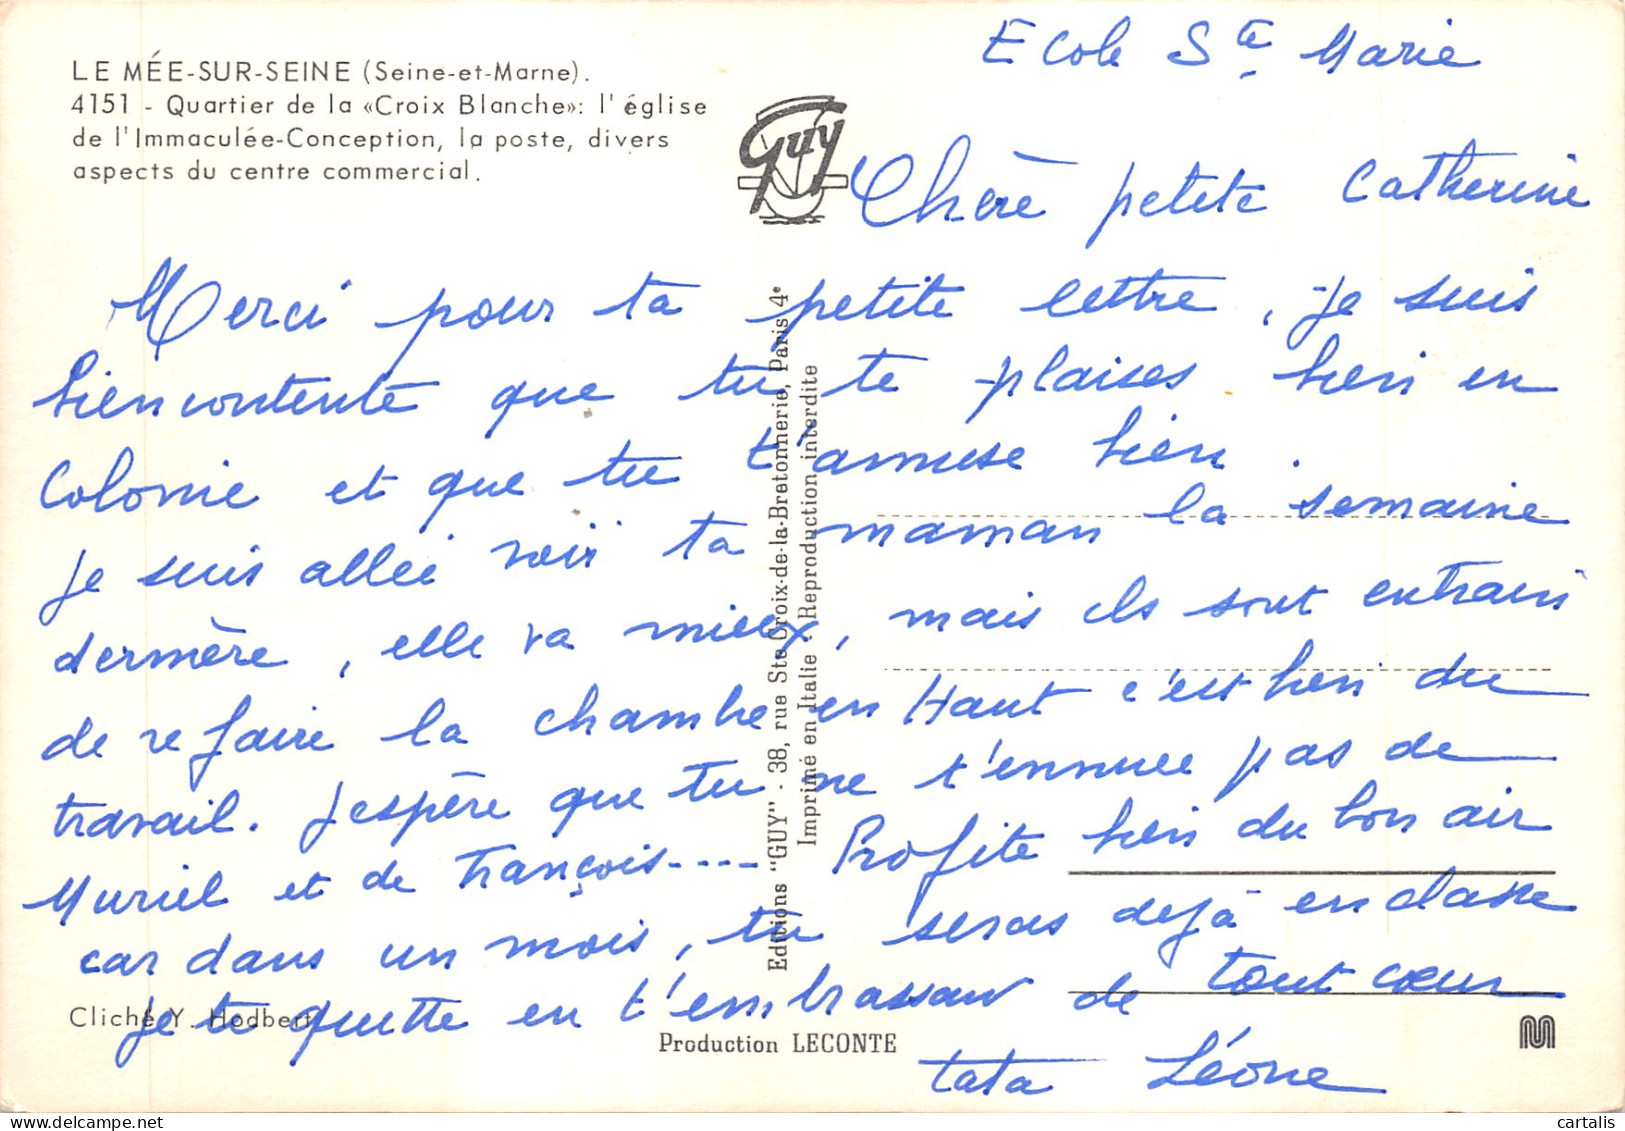 LE MÉE-SUR-SEINE (Seine-et-Marne).
4151 - Quartier de la «Croix Blanche»: l'église
de l'Immaculée-Conception, la poste, divers
aspects du centre commercial.
Guy
Ecole Ste Marie
Chère petite Catherine
Merci pour ta petite lettre, je suis
bien contente que tu te plaises bien en
Colonie et que tu t'amuse bien.
Je suis allée voir ta maman la semaine
dernière, elle va mieux, mais ils sont entrain
de refaire la chambre en Haut c'est bien du
travail. J'espère que tu ne t'ennuee pas de
Muriel et de François---- Profite bien du bon air
car dans un mois, tu seras dejà en classe
Je te quitte en t'embrassant de tout cœur
tata Léone
Editions "GUY" - 38, rue Ste-Croix-de-la-Bretonnerie, Paris 4e
Imprimé en Italie - Reproduction interdite
Cliché Y. Hodbert
Production LECONTE
M
cartalis